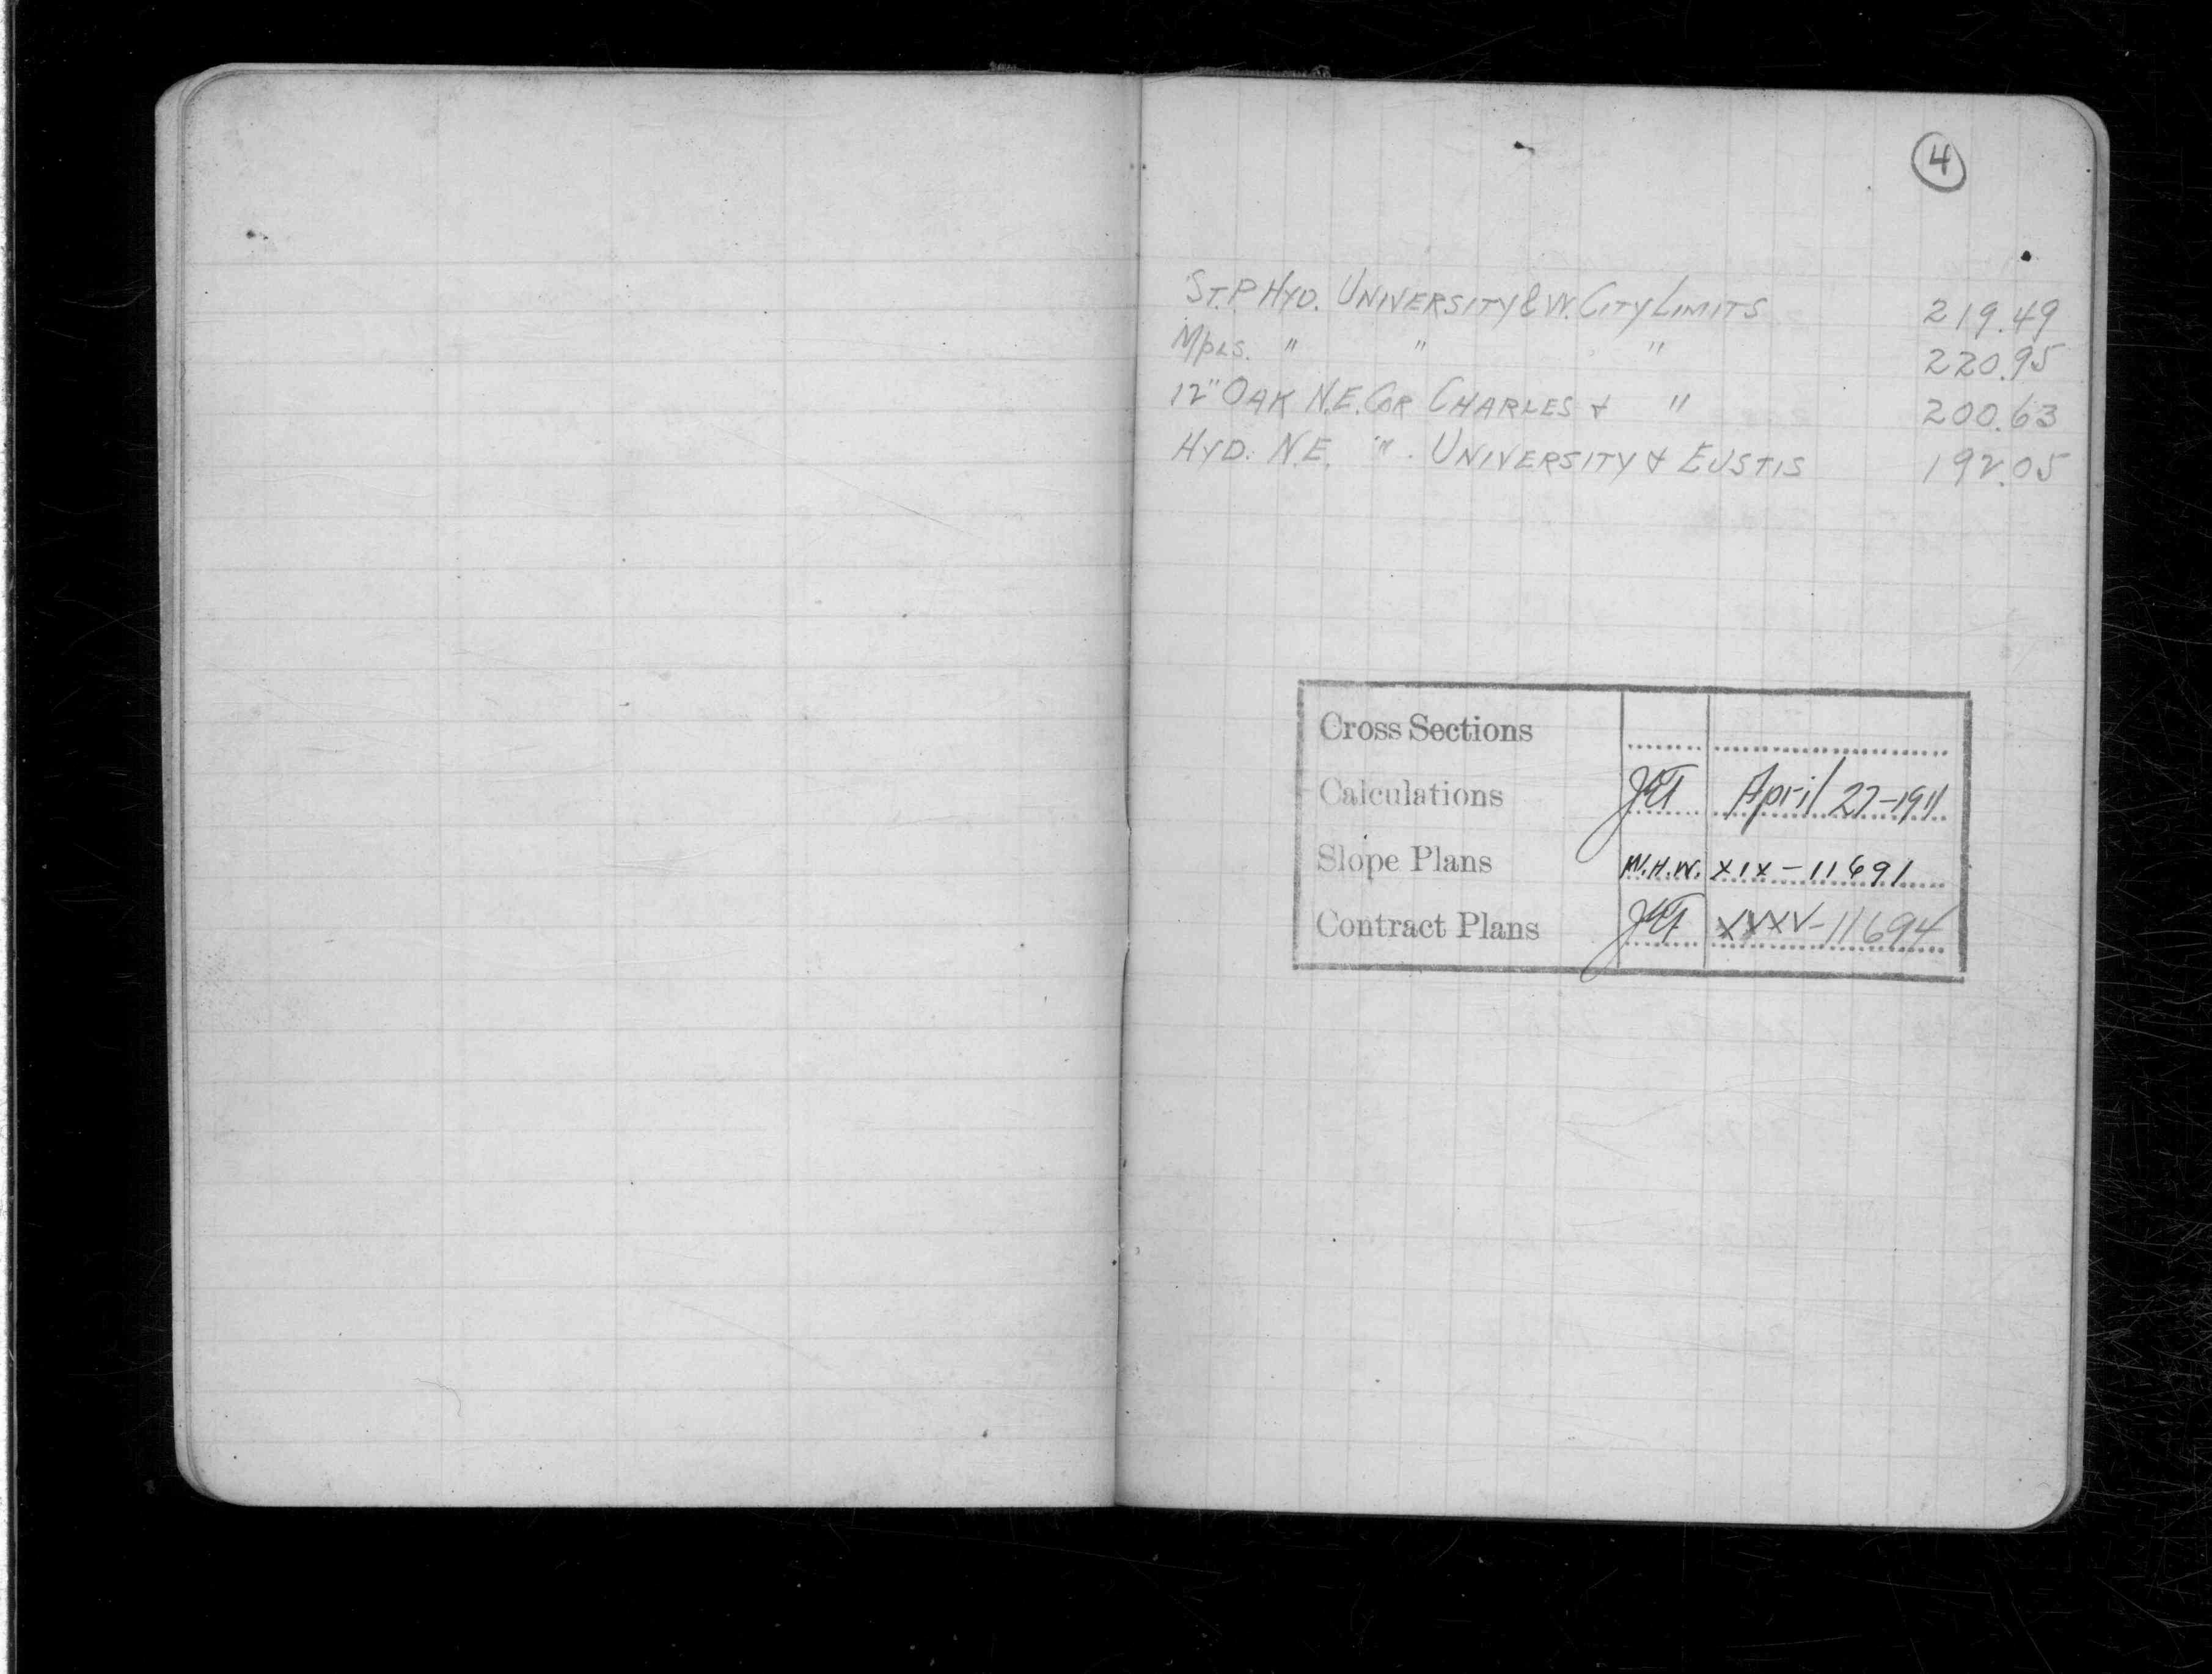 4
ST. P. HYD. UNIVERSITY & W. CITY LIMITS 219.49
Mpls. " " " 220.95
12" OAK N.E. COR CHARLES & " 200.63
HYD. N.E. " UNIVERSITY & EUSTIS 192.05
Cross Sections
Calculations April 27-1911
Slope Plans W.H.W. XIX-11691
Contract Plans XXXV-11694